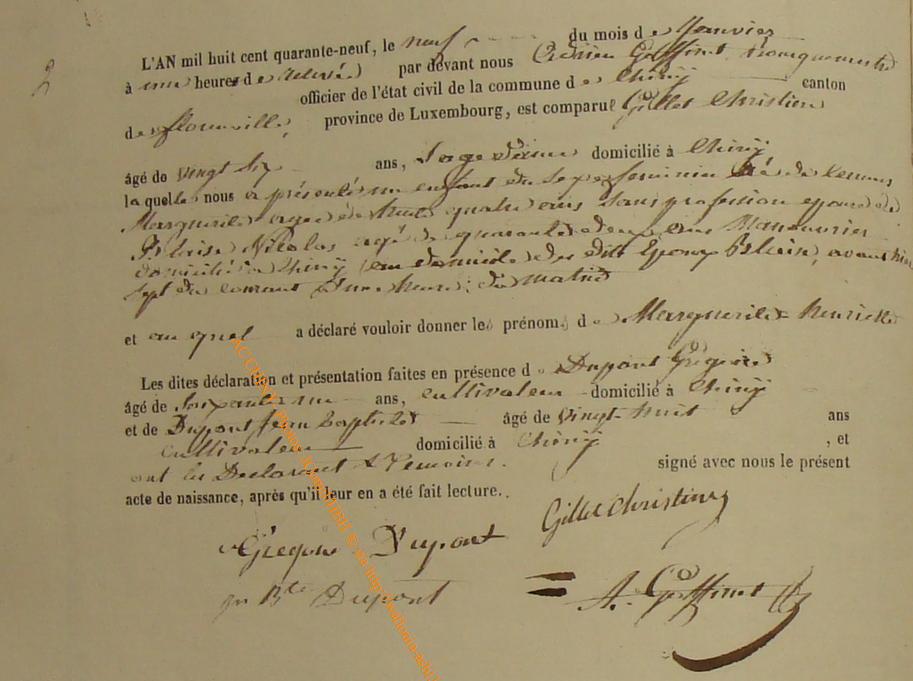 2
L'AN mil huit cent quarante-neuf, le neuf du mois de Janvier
à une heures de relevée par devant nous Adrien Goffinet Bourguemestre
officier de l'état civil de la commune de Chiny canton
de florenville, province de Luxembourg, est comparue Gillet Christine
âgé de vingt six ans, Sage femme domicilié à Chiny
laquelle nous a présenté un enfant du sexe feminin né de
Marguerite agee de trente quatre ans sans profession epouse de
Blaise Nicolas agé de quarante deux ans Manouvrier
domicilié à Chiny au domicile des dits Epoux Blaise, avant hier
sept du courant à une heure du matin
et auquel a déclaré vouloir donner les prénoms de Marguerite Henriette
Les dites déclaration et présentation faites en présence de Dupont Grégoire
âgé de soixante un ans, cultivateur domicilié à Chiny
et de Dupont Jean Baptiste âgé de vingt huit ans
cultivateur domicilié à Chiny, et
ont les Declarant & Temoins. signé avec nous le présent
acte de naissance, après qu'il leur en a été fait lecture..
Gillet Christine
Grégoire Dupont
Jn Bte Dupont A. Goffinet